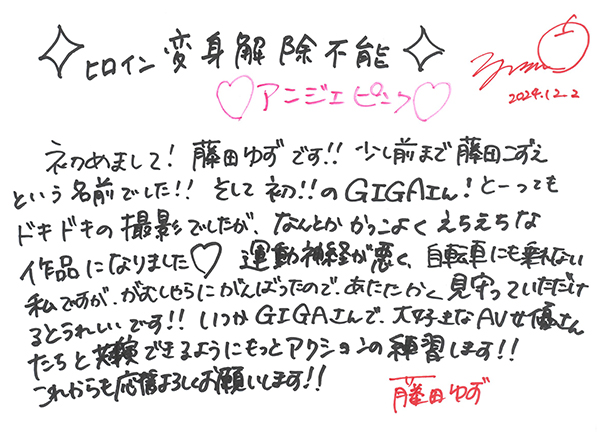 ヒロイン変身解除不能
♡アンジェピンク♡
2024.12.2
初めまして!藤田ゆずです!!少し前まで藤田こずえ
という名前でした!!そして初!!のGIGAさん!とーっても
ドキドキの撮影でしたが、なんとかかっこよくえちえちな
作品になりました♡ 運動神経が悪く、自転車にも乗れない
私ですが、がむしゃらにがんばったので、あたたかく見守っていただけ
るとうれしいです!!いつかGIGAさんで、大好きなAV女優さん
たちと共演できるようにもっとアクションの練習します!!
これからも応援よろしくお願いします!!
藤田ゆず